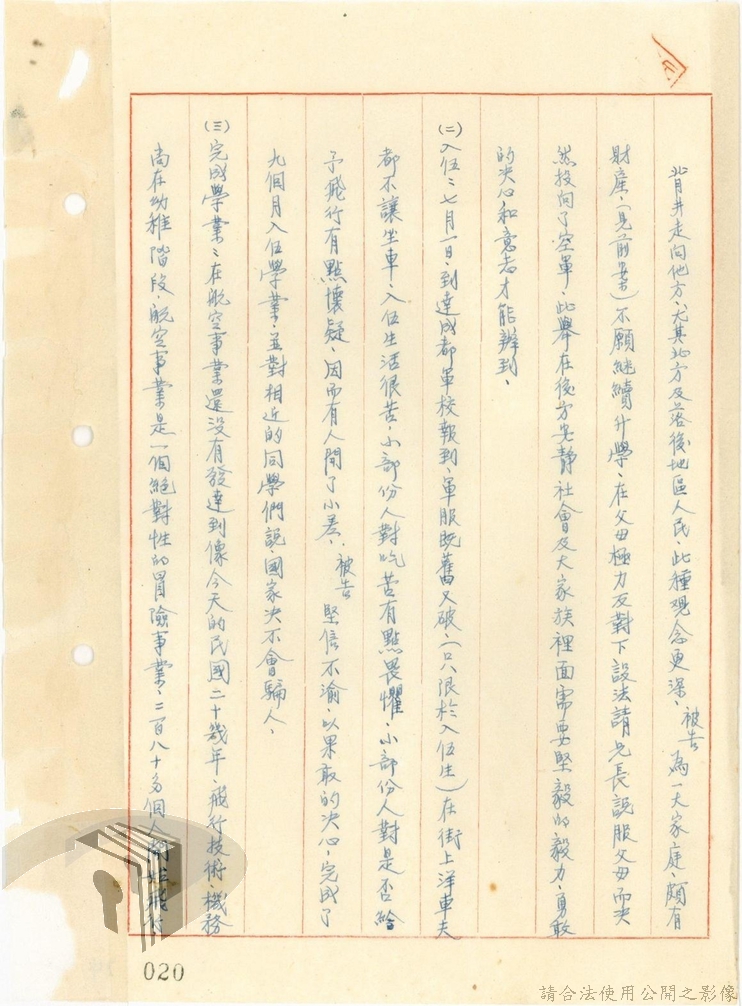 背井走向他方、尤其北方及落後地區人民、此種观念更深、被告為一大家庭、頗有
財產、(見前業書)不願継續升學、在父母極力反對下設法請兄長說服父母而决
然投向了空軍、此舉在後方安靜社會及大家族裡面需要堅毅的毅力、勇敢
的决心和意志才能辦到、
(二)入伍：七月一日、到達成都軍校報到、軍服既舊又破、(只限於入伍生)在街上洋車夫
都不讓坐車、入伍生活很苦、小部份人對吃苦有點畏懼、小部份人對是否給
予飛行有點懷疑、因而有人開了小差、被告堅信不渝、以果敢的决心、完成了
九個月入伍學業、並對相近的同學們說、國家决不會騙人、
(三)完成學業：在航空事業還沒有發達到像今天的民國二十幾年、飛行技術、機務
尚在幼稚階段、航空事業是一個絕對性的冒險事業、二百八十多個人
020
請合法使用公開之影像